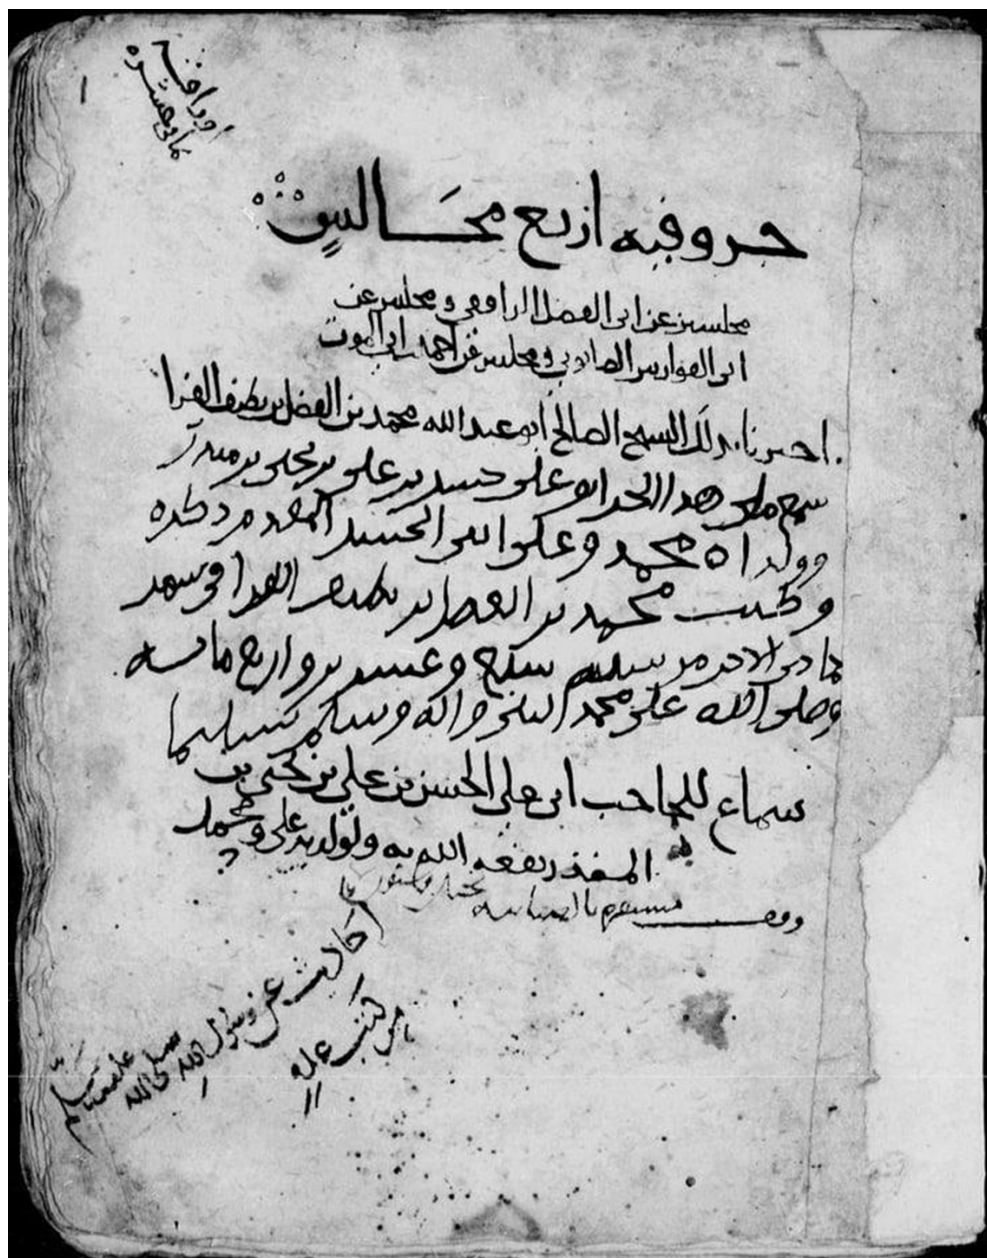 أوراقه
ثماني عشرة
١
جزو فيه اربع مجالس
مجلسين عن ابى الفضل الرافقي ومجلس عن
ابى الفوارس الصابوني ومجلس عن احمد بن ابى الموت
اخبرنا بذلك الشيخ الصالح ابو عبد الله محمد بن الفضل بن نظيف الفرا
سمع منى هذا الجزء ابو على حسين بن على بن يحيى بن
وولداه محمد وعلى الحسين
وكتب محمد بن الفضل بن نظيف الفرا فى شهر
جمادى الاخر من سنة سبع وعشرين واربع مائة
وصلى الله على محمد النبى واله وسلم تسليما
سماع للحاجب ابى على الحسن بن على بن يحيى بن
نفعه الله به ولولديه على ومحمد
وقف مستقره بالضيائية
احاديث عن رسول الله صلى الله عليه وسلم
من كتب علي